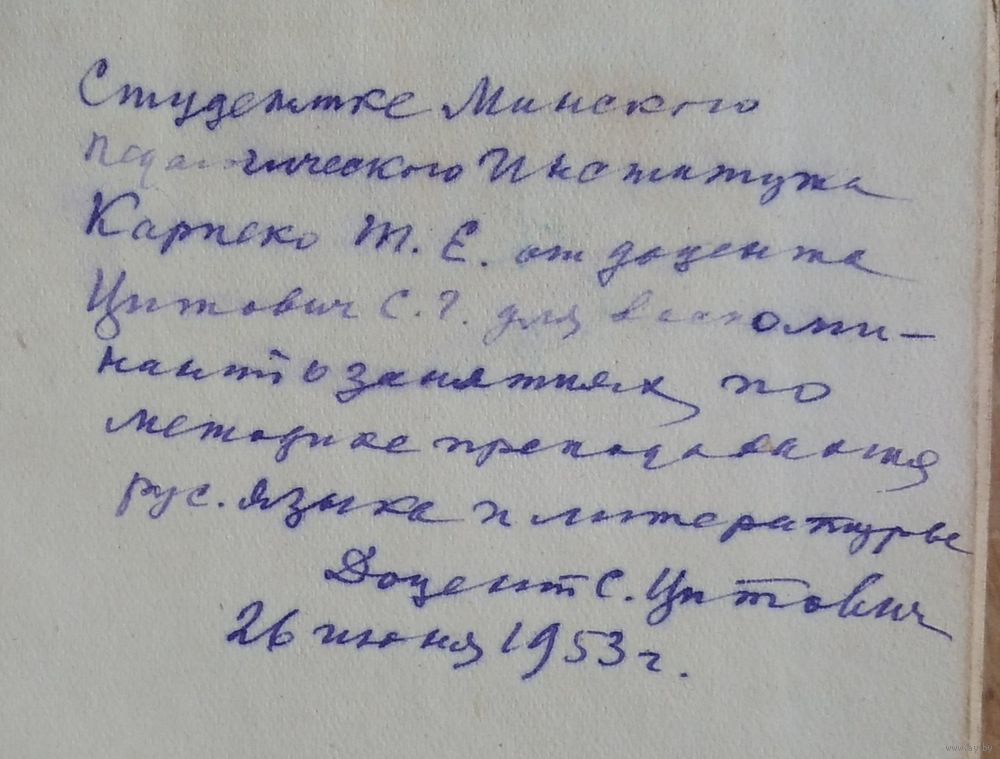 Студентке Минского
педагогического Института
Карпеко Т. Е. от доцента
Цитович С. Г. для воспоми-
наний о занятиях по
методике преподавания
рус. языка и литературы
Доцент С. Цитович
26 июня 1953 г.
www.ay.by